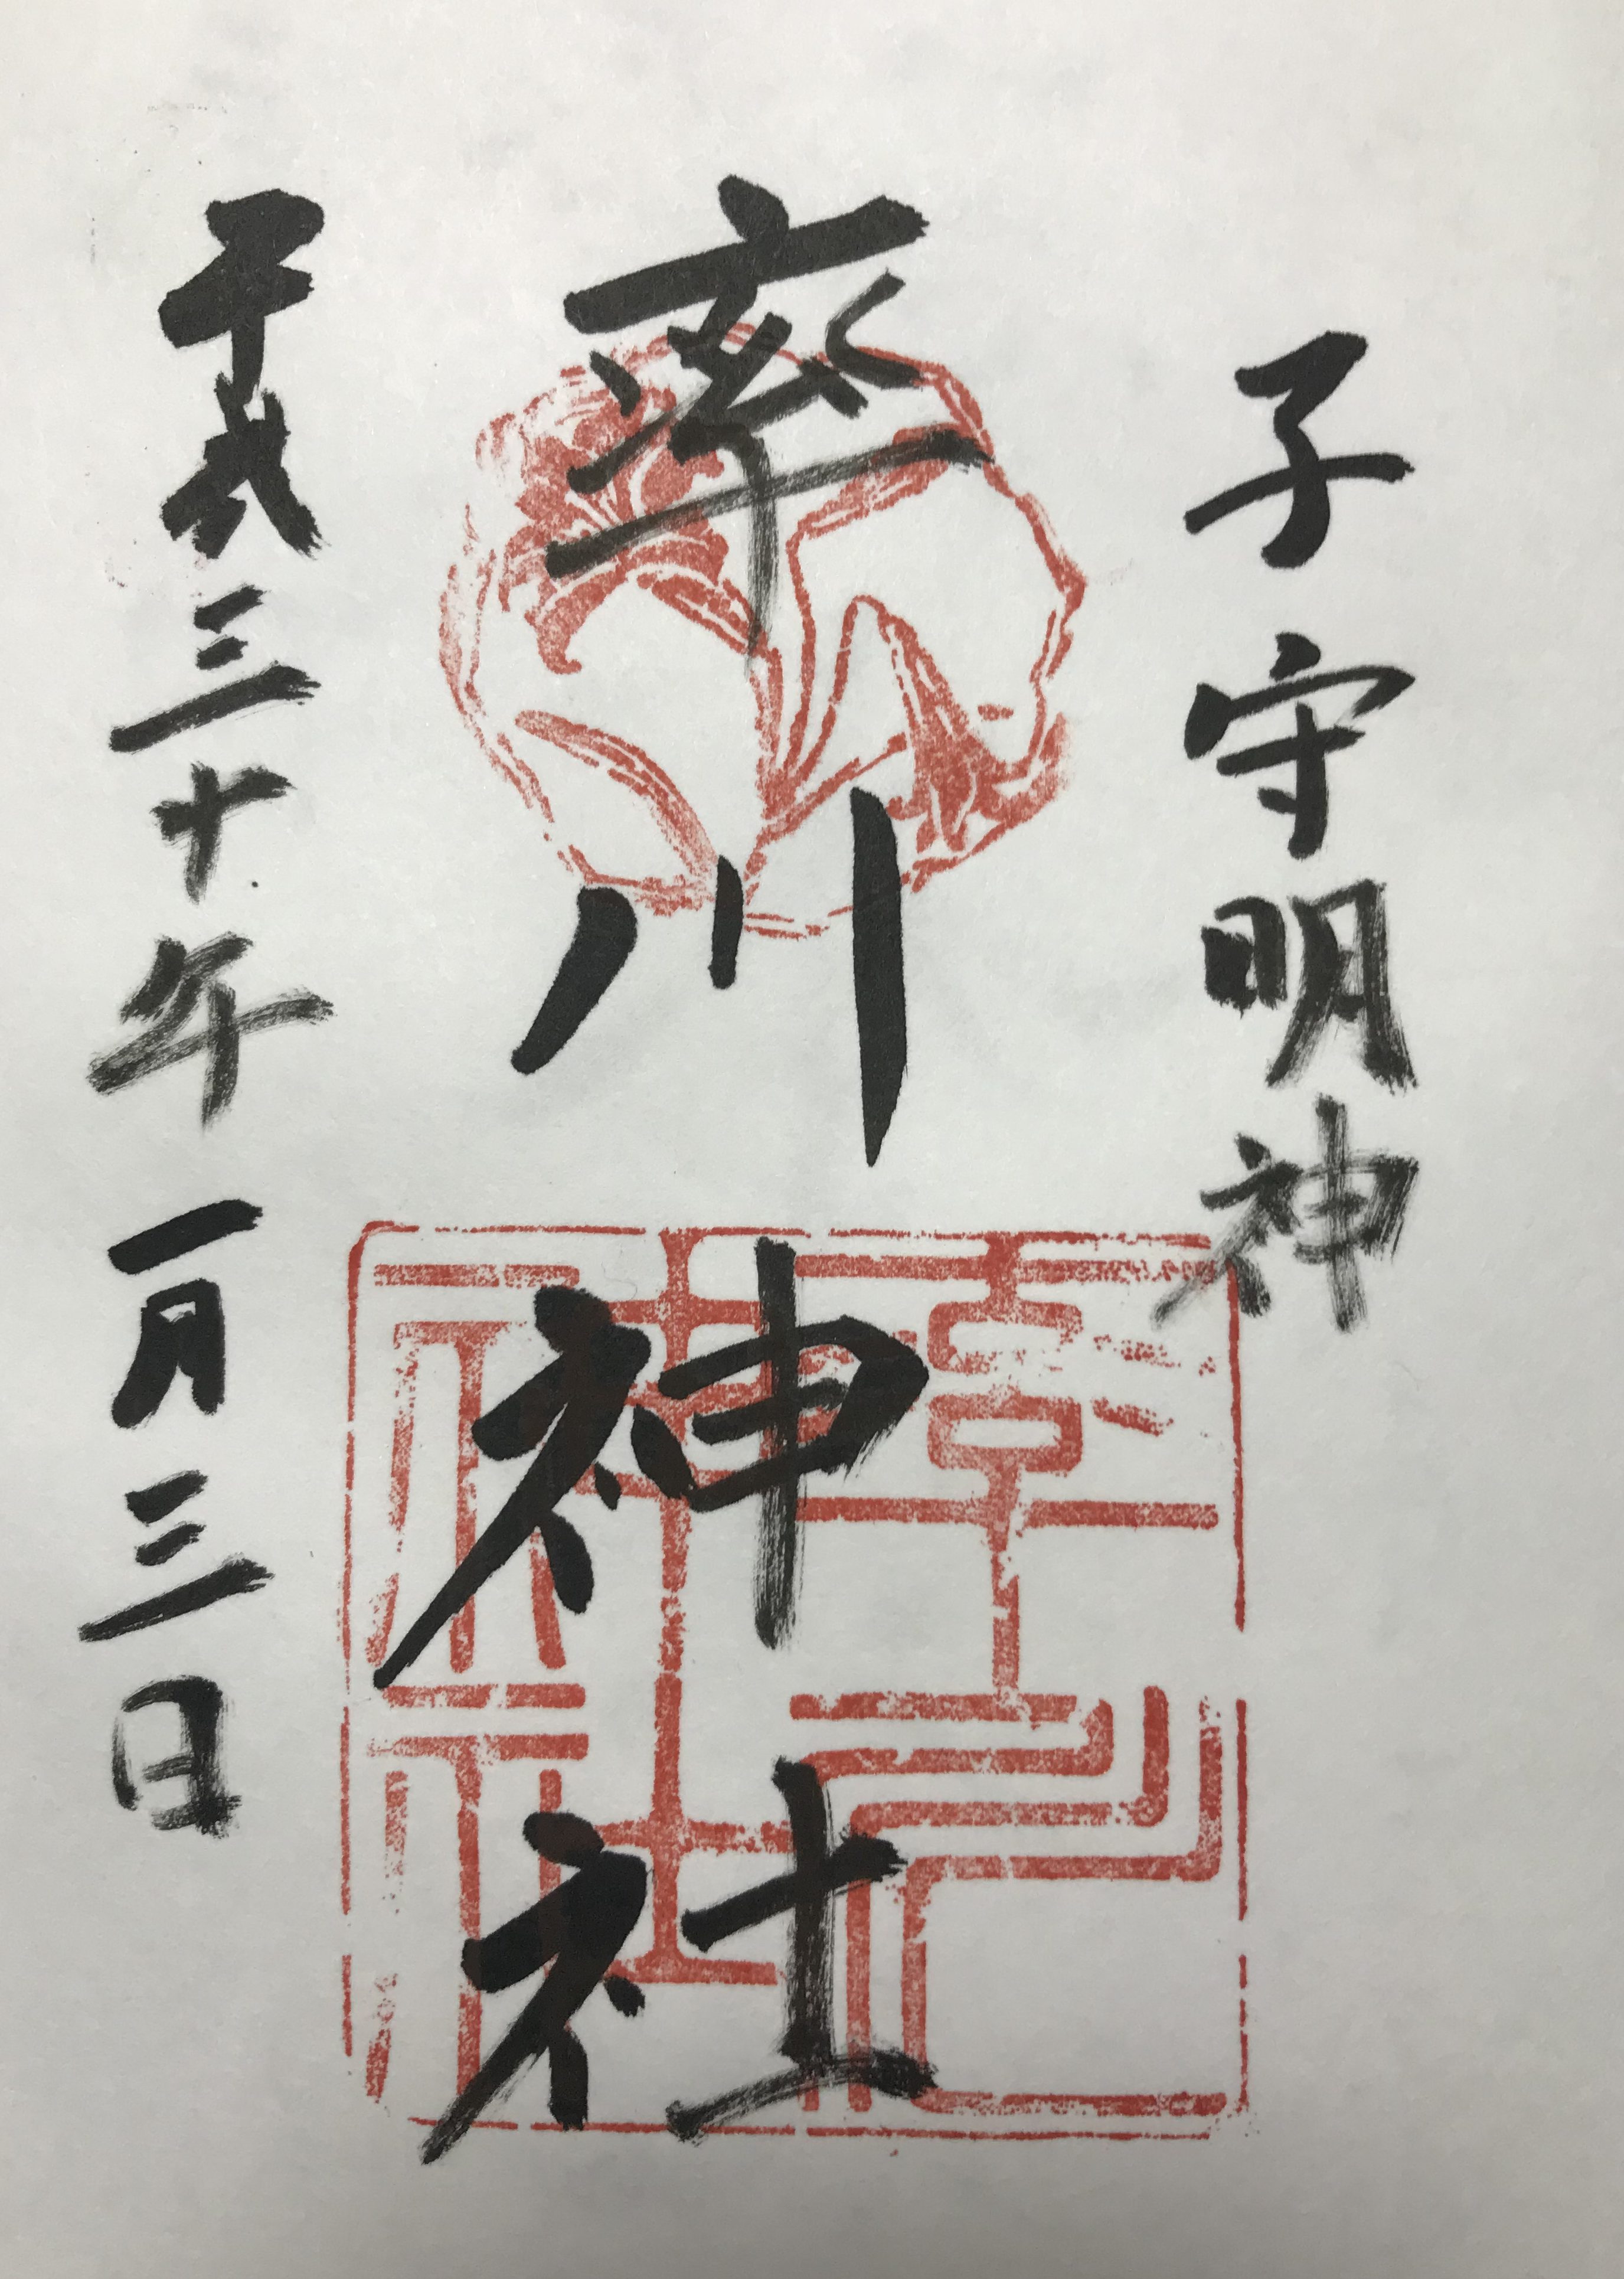 子守明神
率川神社
平成三十年一月三日
率川神社